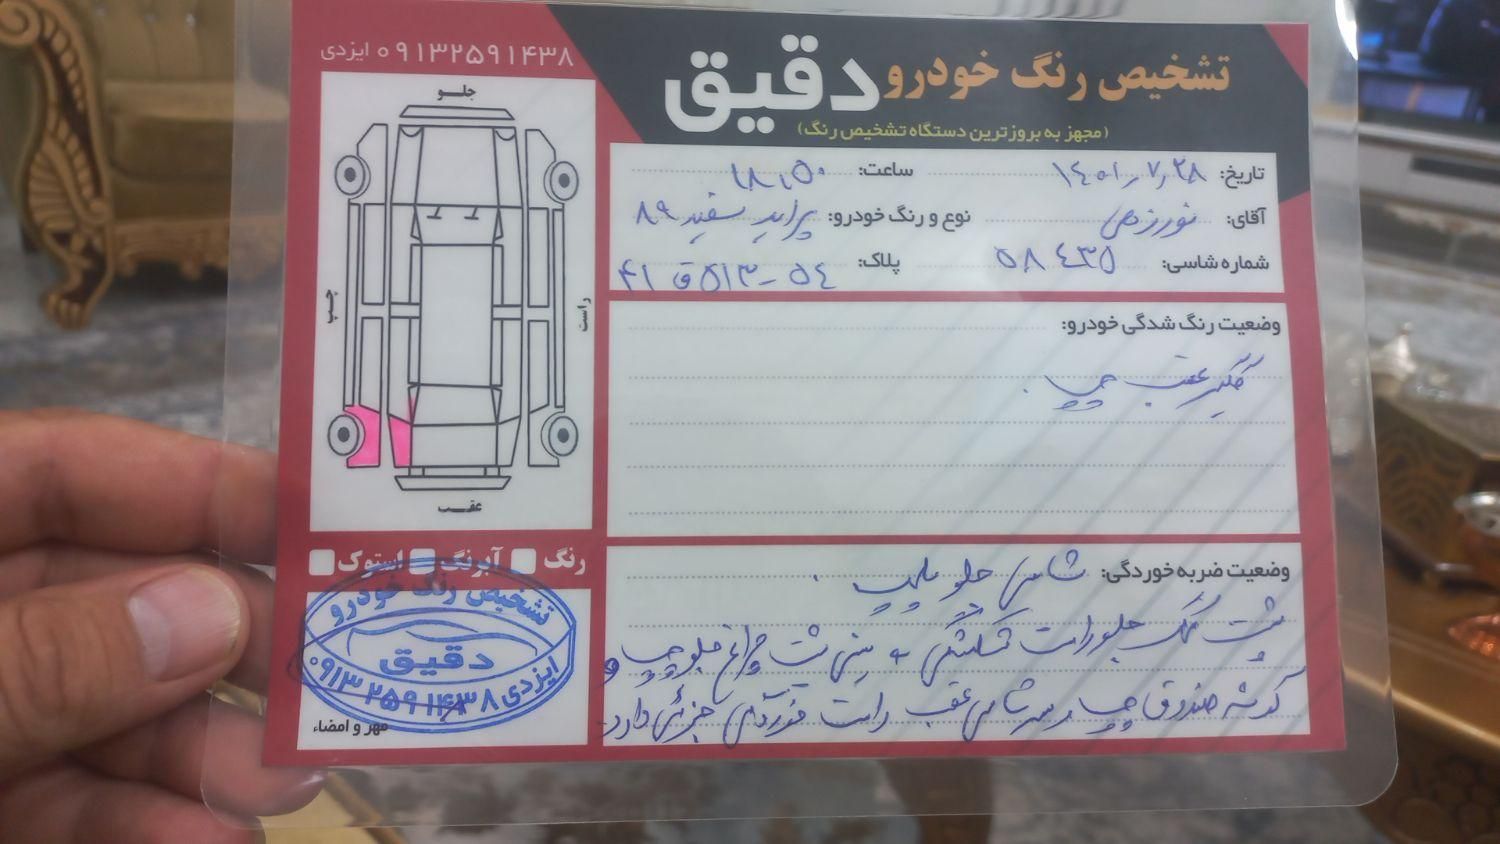 تشخیص رنگ خودرو دقیق
(مجهز به بروزترین دستگاه تشخیص رنگ)
۰۹۱۳۲۵۹۱۴۳۸ ایزدی
تاریخ: ۱۴۰۱٫۷٫۲۸ ساعت: ۱۸٫۵۰
آقای: نوع و رنگ خودرو: پراید سفید ۸۹
شماره شاسی: ۵۸۴۳۵ پلاک: ۵۴ - ۵۱۳ ق ۴۱
وضعیت رنگ شدگی خودرو:
گلگیر عقب چپ.
وضعیت ضربه خوردگی: شاسی جلو پلمپ.
پشت جلو راست شکستگی + سینی پشت چراغ جلو چپ و
گوشه صندوق چپ و سر شاسی عقب راست خوردگی جزئی دارد.
جلــو
چپ
راست
عقــب
رنگ آبرنگ استوک
تشخیص رنگ خودرو
دقیق
ایزدی ۰۹۱۳۲۵۹۱۴۳۸
مهر و امضاء